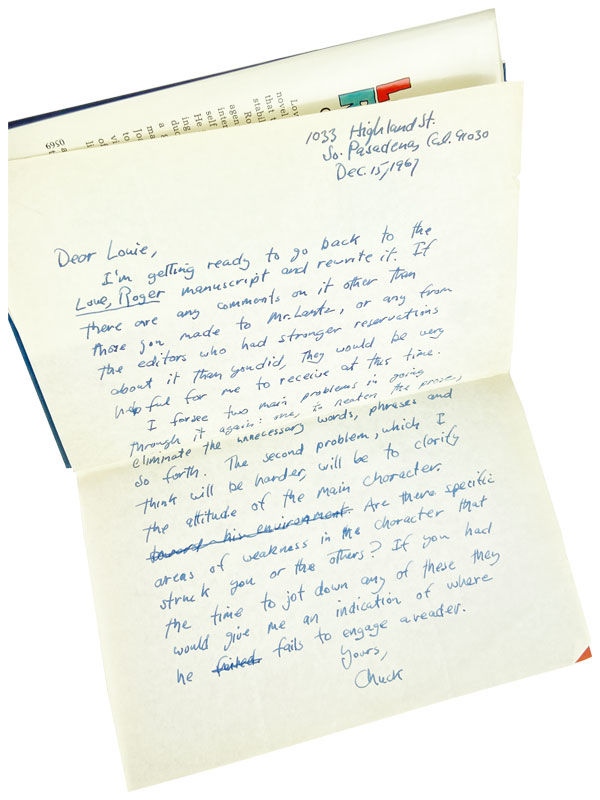 Lov
novel
that t
stabili
Ro
agen
inter
self
He
ing
duc
a s
ma
Jon
to
vi
of
li
6950
1033 Highland St.
So. Pasadena, Cal. 91030
Dec. 15, 1967
Dear Louie,
I'm getting ready to go back to the
Love, Roger manuscript and rewrite it. If
there are any comments on it other than
those you made to Mr. Lantz, or any from
the editors who had stronger reservations
about it than you did, they would be very
helpful for me to receive at this time.
I forsee two main problems in going
through it again: one, to neaten the prose,
eliminate the unnecessary words, phrases and
so forth. The second problem, which I
think will be harder, will be to clarify
the attitude of the main character.
toward his environment. Are there specific
areas of weakness in the character that
struck you or the others? If you had
the time to jot down any of these they
would give me an indication of where
he failed fails to engage a reader.
Yours,
Chuck